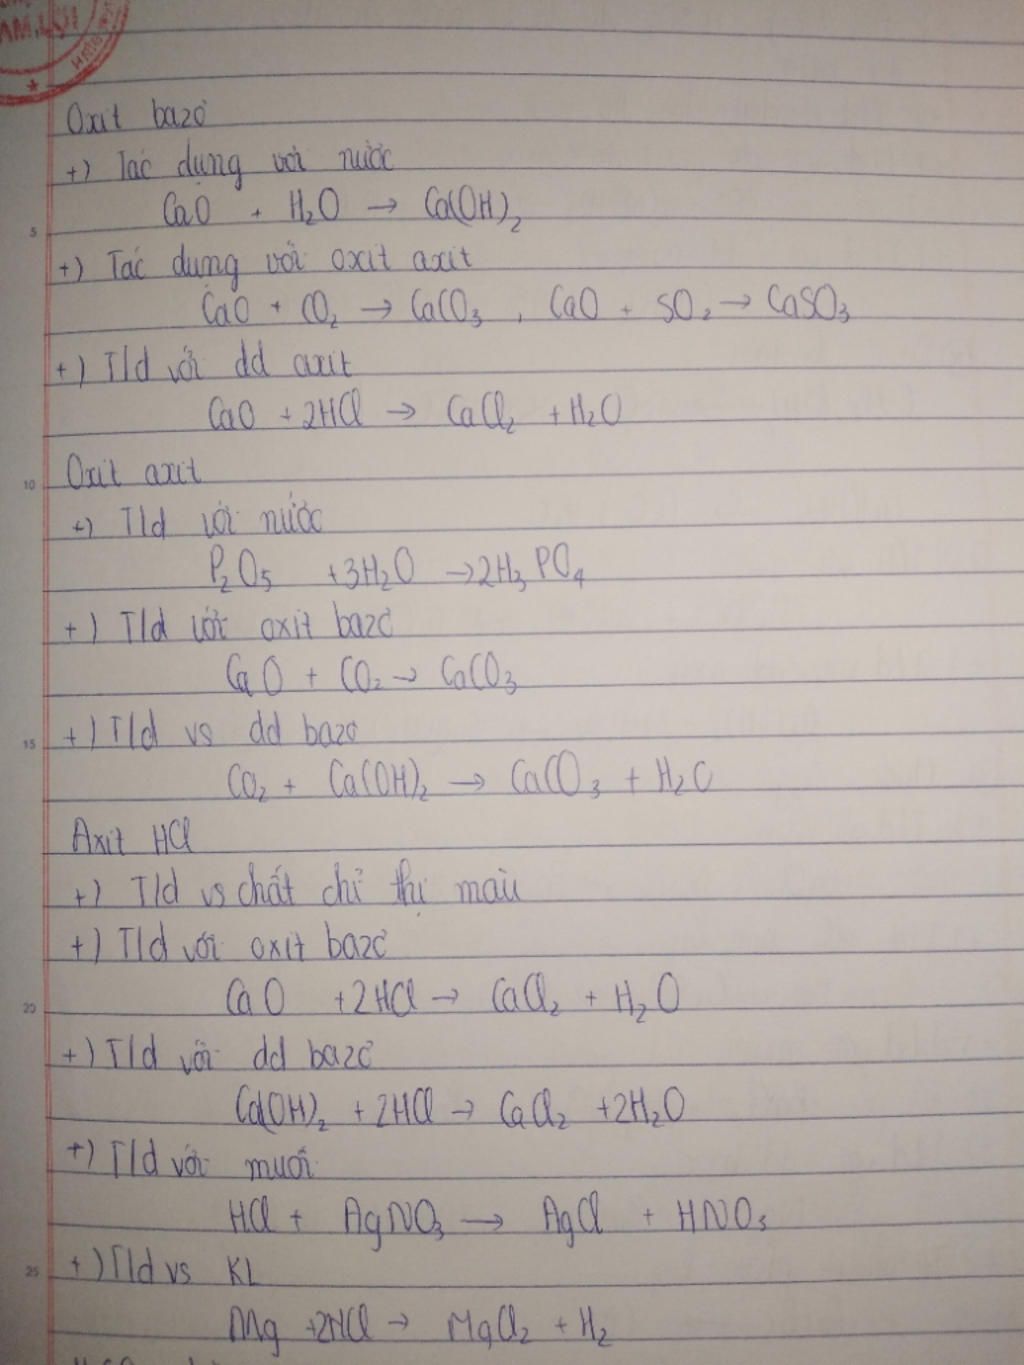 Oxit bazơ
+) Tác dụng với nước
CaO + H₂O → Ca(OH)₂
5
+) Tác dụng với oxit axit
CaO + CO₂ → CaCO₃ , CaO + SO₂ → CaSO₃
+) T/d với dd axit
CaO + 2HCl → CaCl₂ + H₂O
Oxit axit
10
+) T/d với nước
P₂O₅ + 3H₂O → 2H₃PO₄
+) T/d với oxit bazơ
CaO + CO₂ → CaCO₃
+) T/d vs dd bazơ
15
CO₂ + Ca(OH)₂ → CaCO₃ + H₂O
Axit HCl
+) T/d vs chất chỉ thị màu
+) T/d với oxit bazơ
CaO + 2HCl → CaCl₂ + H₂O
20
+) T/d với dd bazơ
Ca(OH)₂ + 2HCl → CaCl₂ + 2H₂O
+) T/d với muối
HCl + AgNO₃ → AgCl + HNO₃
+) T/d vs KL
25
Mg + 2HCl → MgCl₂ + H₂